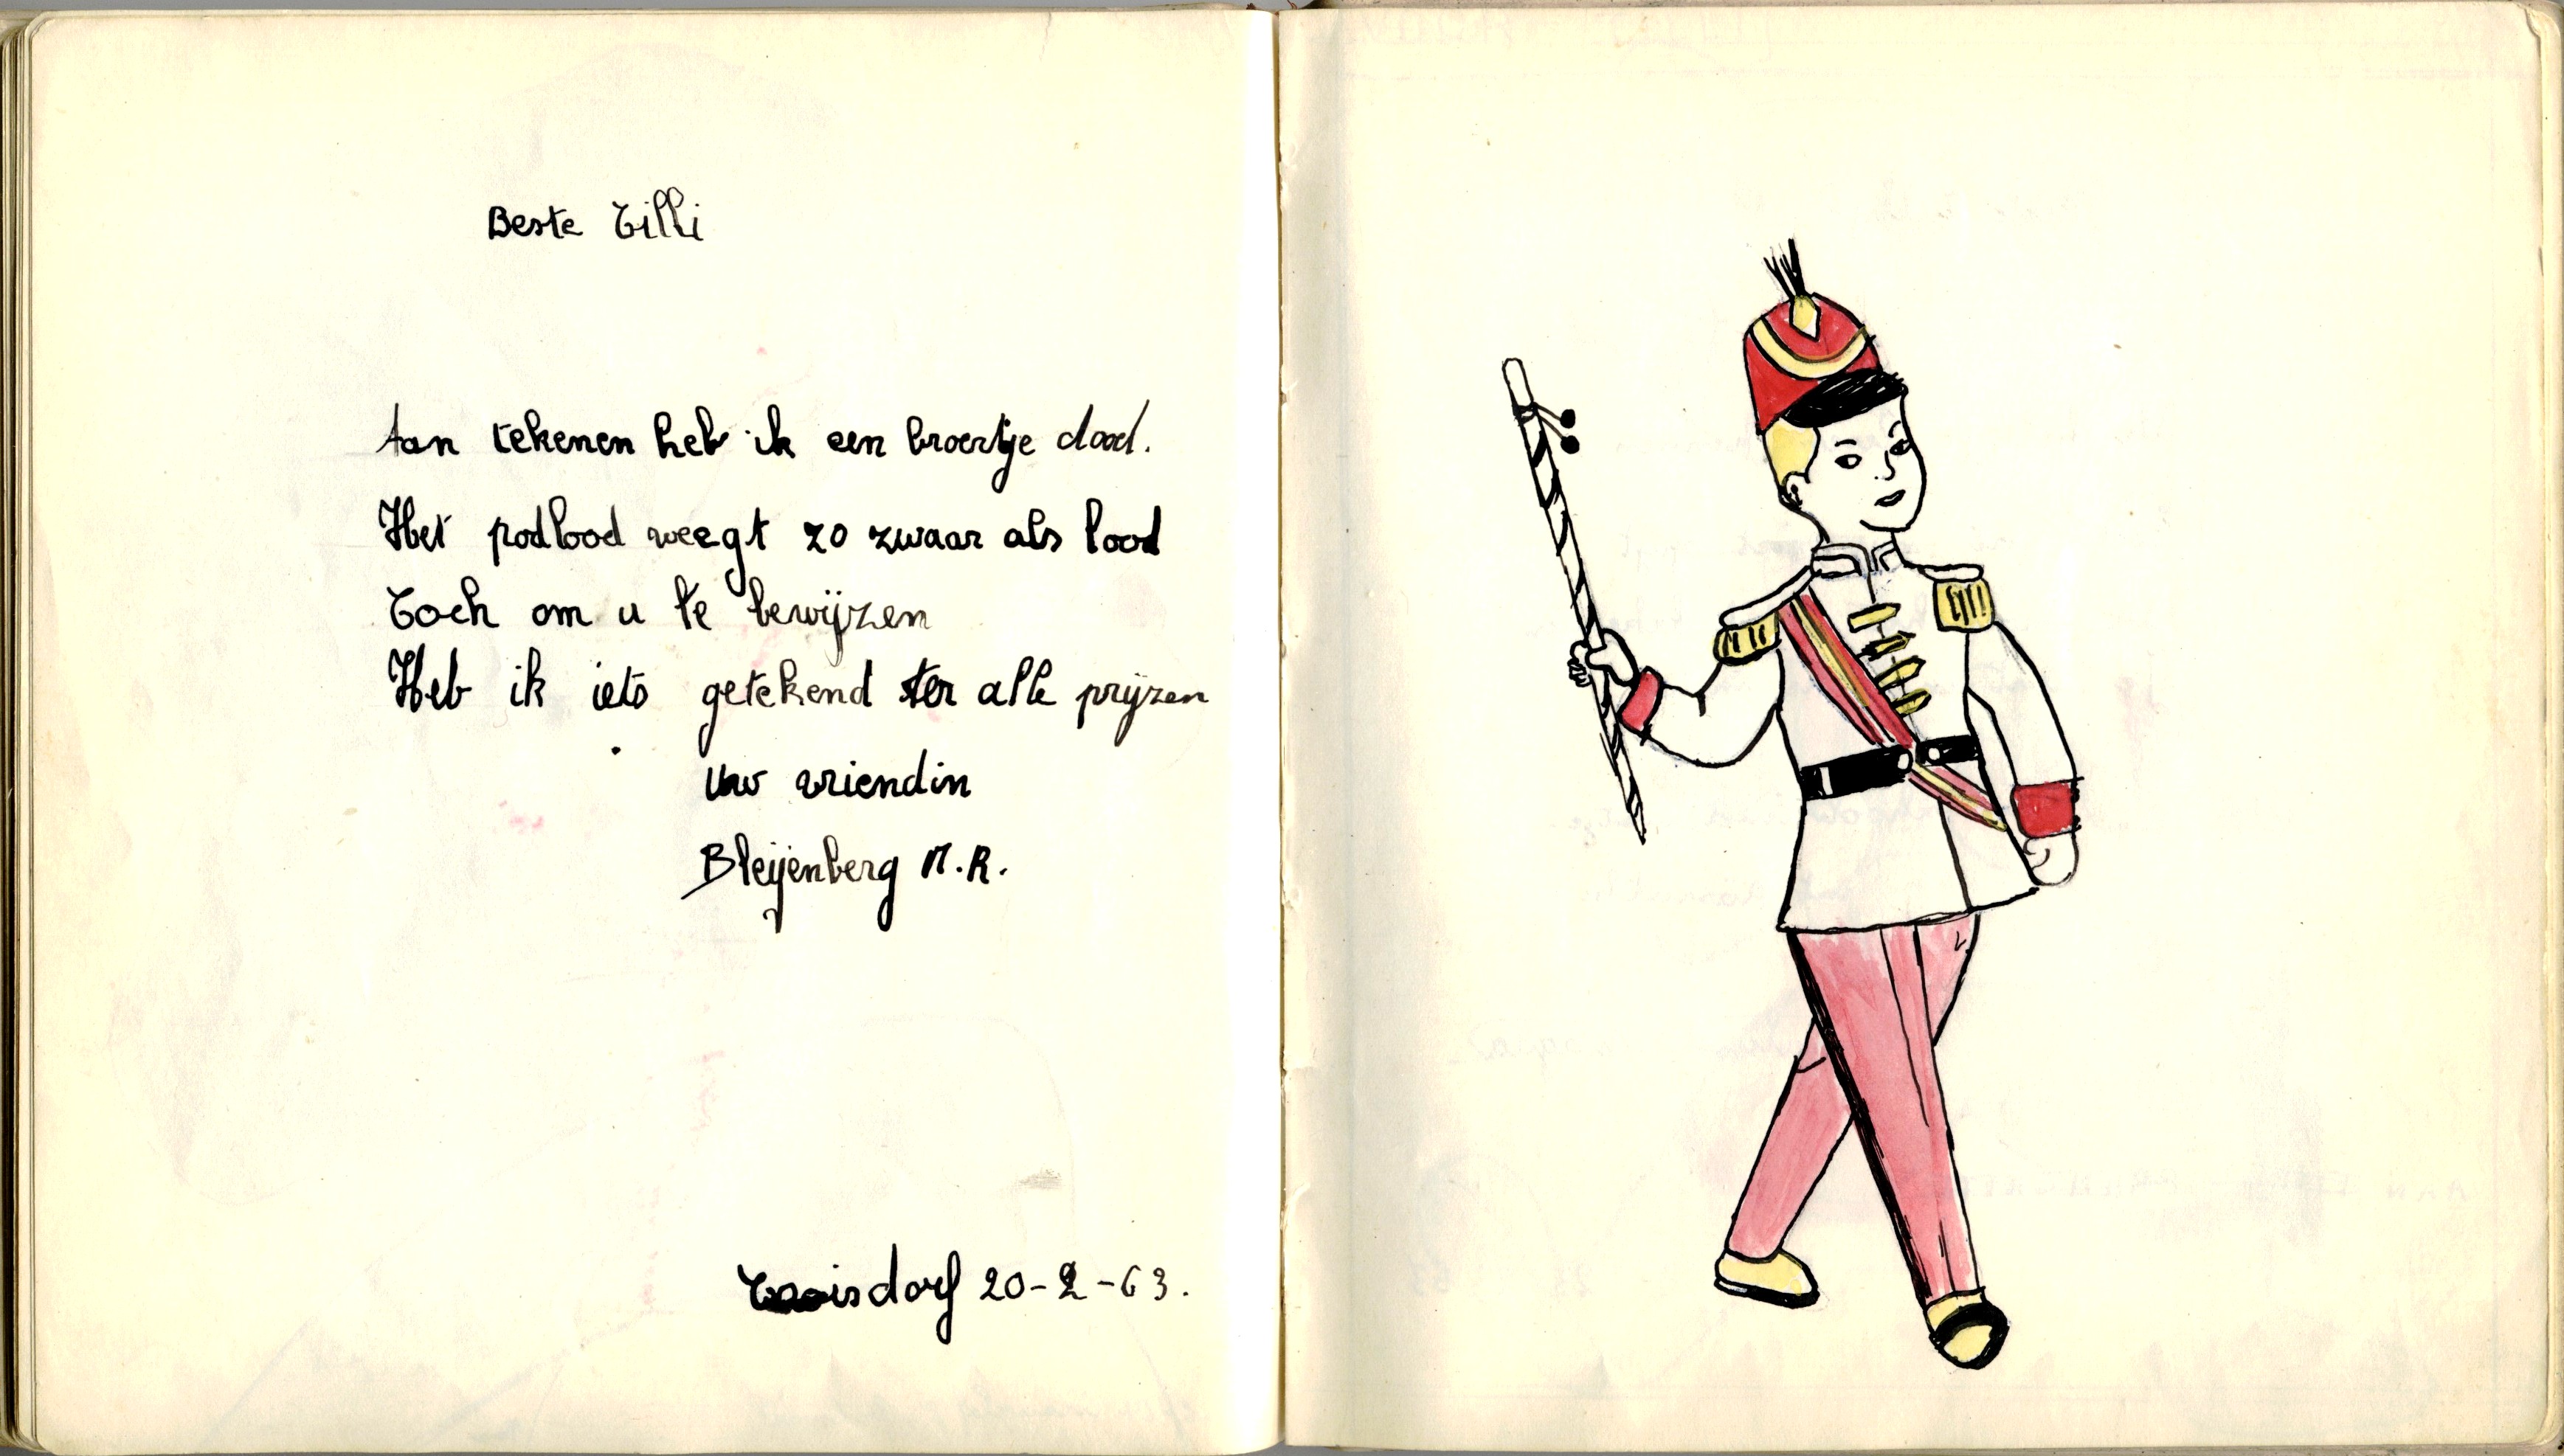 Beste Tilli
Aan tekenen heb ik een broertje dood.
Het podlood weegt zo zwaar als lood
Toch om u te bewijzen
Heb ik iets getekend ter alle prijzen
Uw vriendin
Bleijenberg M.R.
Troisdorf 20-2-63.